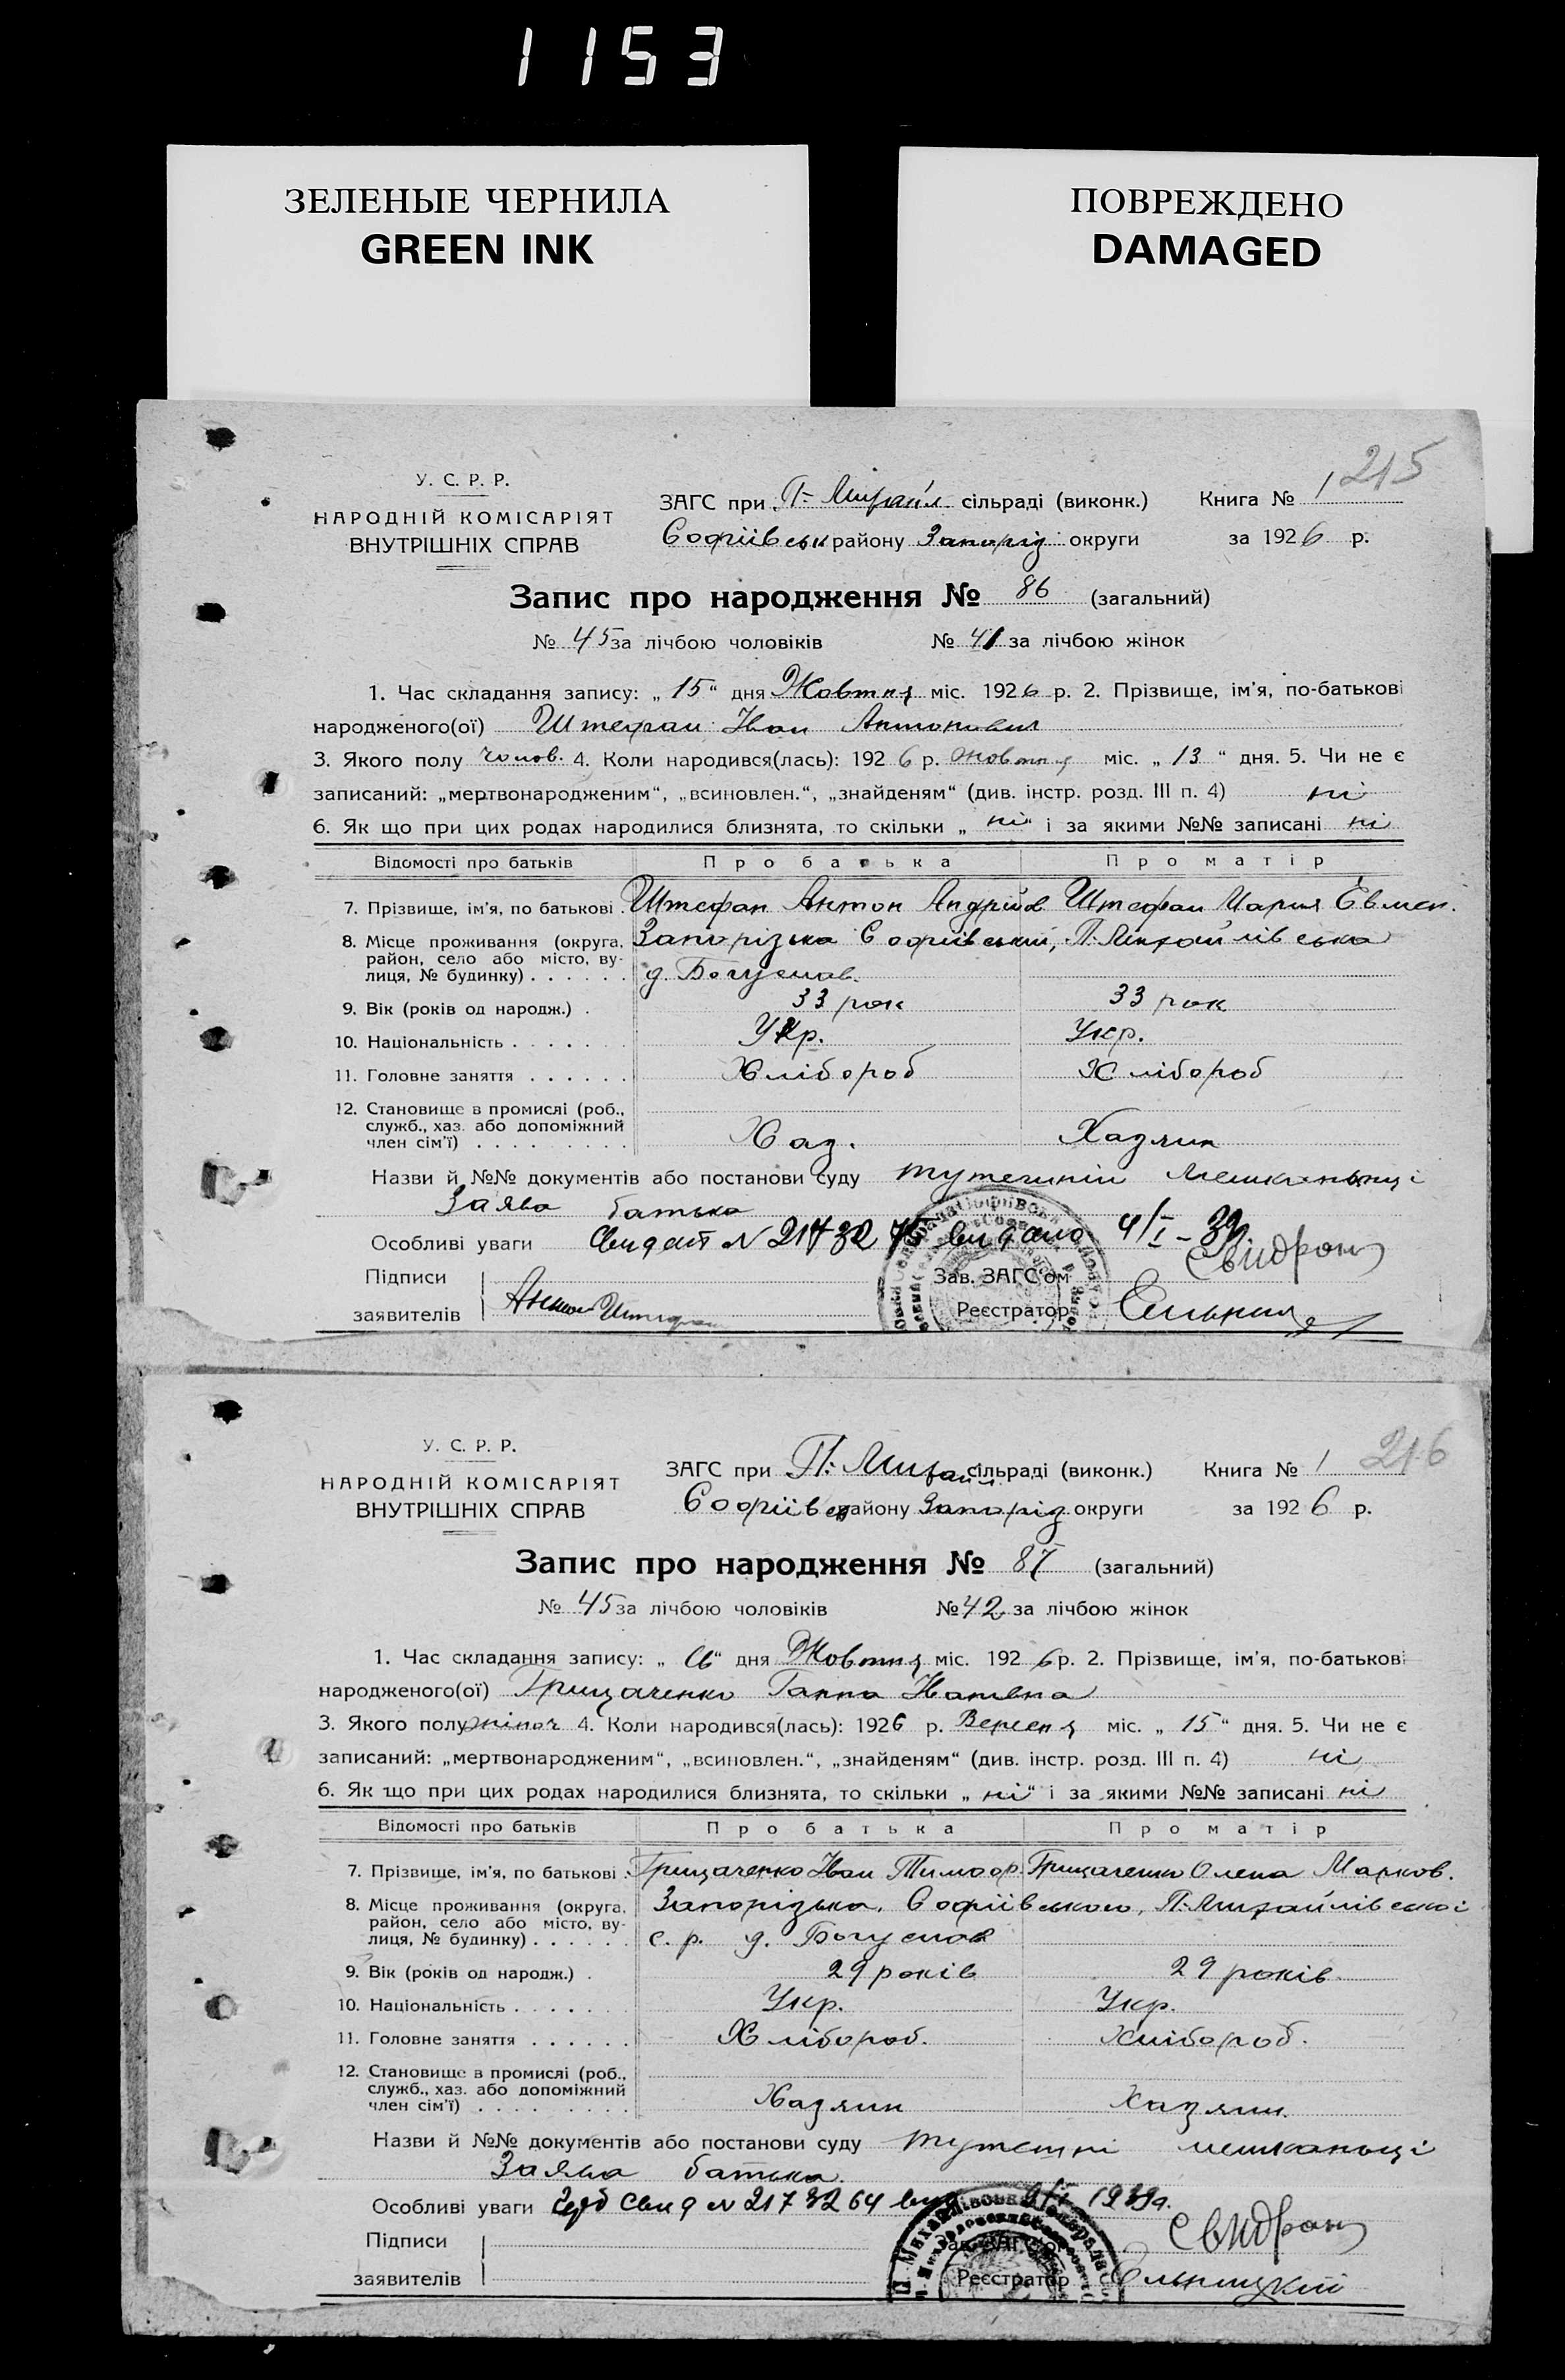 1153
ЗЕЛЕНЫЕ ЧЕРНИЛА
GREEN INK
ПОВРЕЖДЕНО
DAMAGED
215
У. С. Р. Р.
НАРОДНІЙ КОМІСАРІЯТ
ВНУТРІШНІХ СПРАВ
ЗАГС при П-Михайл. сільраді (виконк.) Книга № 1
Софіївськ району Запоріз. округи за 1926 р.
Запис про народження № 86 (загальний)
№ 45 за лічбою чоловіків № 41 за лічбою жінок
1. Час складання запису: „ 15 “ дня Жовтня міс. 1926 р. 2. Прізвище, ім'я, по-батькові
народженого(ої) Штефан Іван Антонович
3. Якого полу чолов. 4. Коли народився(лась): 1926 р. жовтня міс. „ 13 “ дня. 5. Чи не є
записаний: „мертвонародженим“, „всиновлен.“, „знайденям“ (див. інстр. розд. III п. 4) ні
6. Як що при цих родах народилися близнята, то скільки „ ні “ і за якими №№ записані ні
Відомості про батьків Про батька Про матір
7. Прізвище, ім'я, по батькові . Штефан Антон Андрійов Штефан Мария Евмен.
8. Місце проживання (округа, район, село або місто, вулиця, № будинку) . . . . . . Запорізька Софіївський, П. Михайлівська
д. Богуслав.
9. Вік (років од народж.) . 33 рок 33 рок
10. Національність . . . . . . . Укр. Укр.
11. Головне заняття . . . . . . Хлібороб Хлібороб
12. Становище в промислі (роб., служб., хаз. або допоміжний член сім'ї) . . . . . . . . . Хаз. Хазяин
Назви й №№ документів або постанови суду тутешній мешканьці
Заява батька
Особливі уваги Свидот N 2173275 видано 4/I-39
Свидрон
Підписи Зав. ЗАГС'ом
заявителів Антон Штефан Реєстратор
216
У. С. Р. Р.
НАРОДНІЙ КОМІСАРІЯТ
ВНУТРІШНІХ СПРАВ
ЗАГС при П. Михайл. сільраді (виконк.) Книга № 1
Софіївськ району Запоріз. округи за 1926 р.
Запис про народження № 87 (загальний)
№ 45 за лічбою чоловіків № 42 за лічбою жінок
1. Час складання запису: „ “ дня Жовтня міс. 1926 р. 2. Прізвище, ім'я, по-батькові
народженого(ої) Грищаченко Ганна Иванівна
3. Якого полу жіноч 4. Коли народився(лась): 1926 р. Вересня міс. „ 15 “ дня. 5. Чи не є
записаний: „мертвонародженим“, „всиновлен.“, „знайденям“ (див. інстр. розд. III п. 4) ні
6. Як що при цих родах народилися близнята, то скільки „ ні “ і за якими №№ записані ні
Відомості про батьків Про батька Про матір
7. Прізвище, ім'я, по батькові . Грищаченко Іван Тимофр. Грищаченко Олена Марков.
8. Місце проживання (округа, район, село або місто, вулиця, № будинку) . . . . . . Запорізька, Софіївського, П. Михайлівської
с. р. д. Богуслав
9. Вік (років од народж.) . 29 років 29 років
10. Національність . . . . . . . Укр. Укр.
11. Головне заняття . . . . . . Хлібороб. Хлібороб.
12. Становище в промислі (роб., служб., хаз. або допоміжний член сім'ї) . . . . . . . . . Хазяин Хазяин.
Назви й №№ документів або постанови суду тутешні мешканьці
Заява батька.
Особливі уваги Свид N 2173264 1939.
Свидрон
Підписи Зав. ЗАГС'ом
заявителів Реєстратор Ельницкий